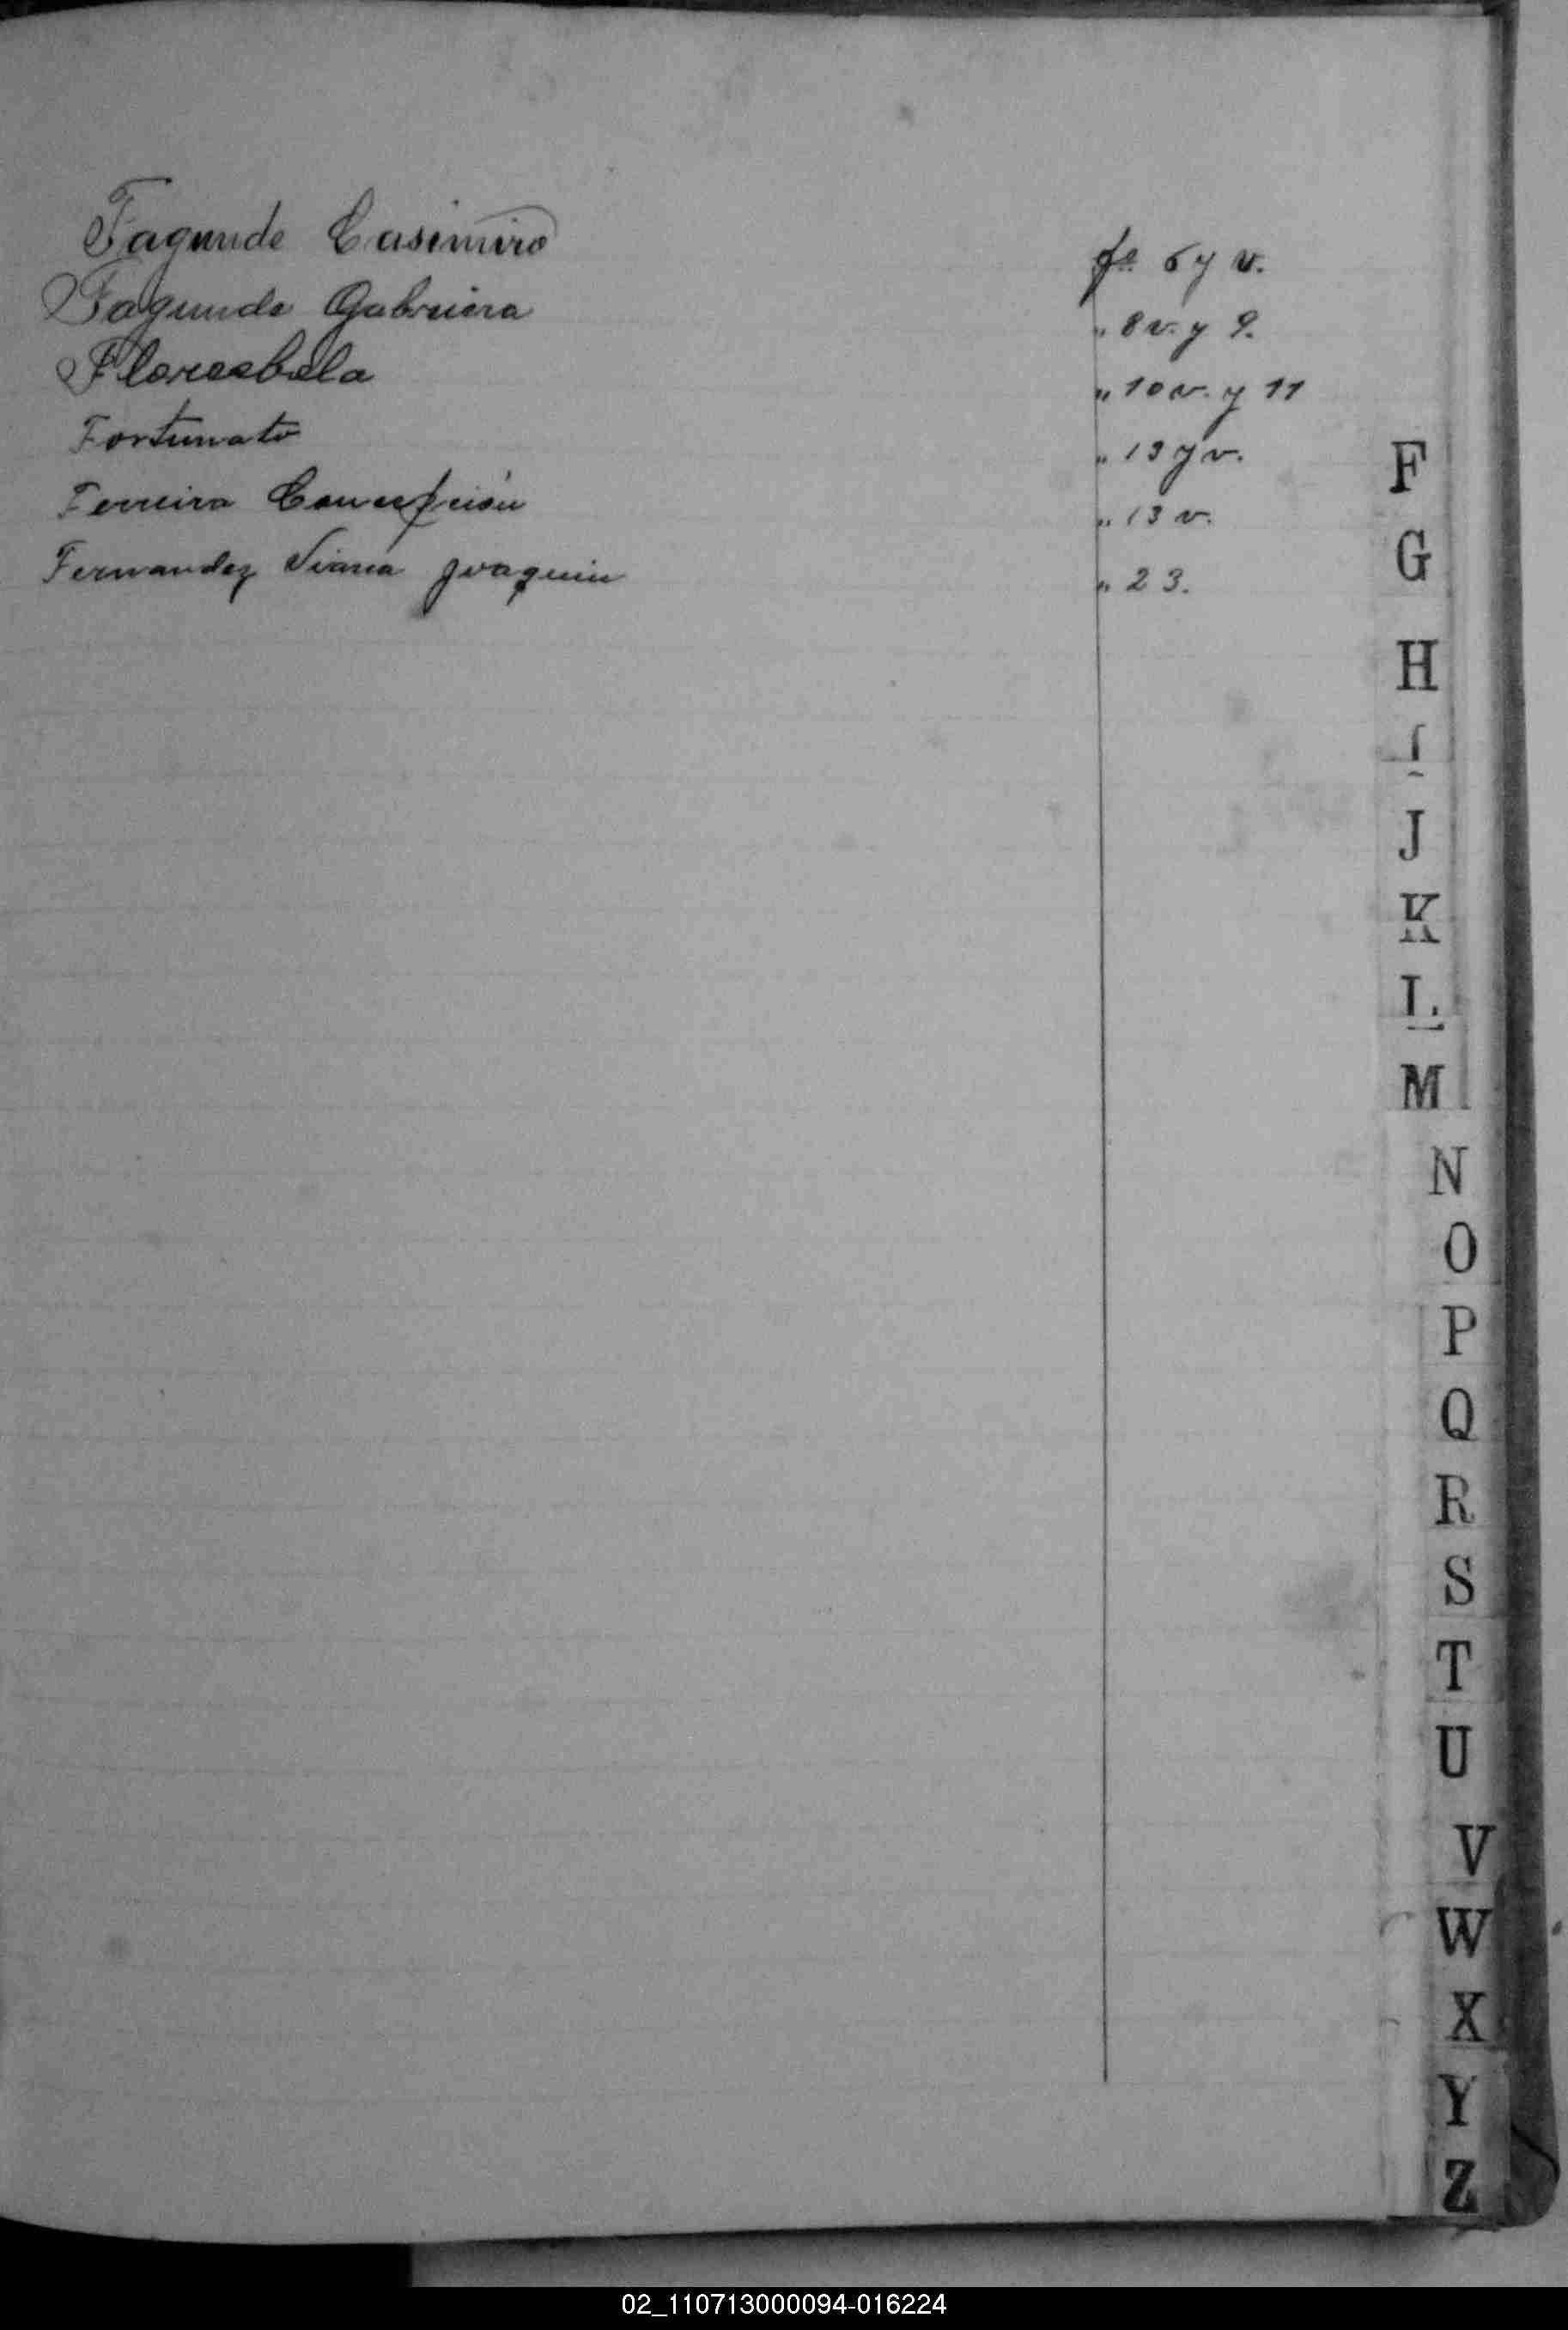 Fagunde Casimiro fs. 6 y v.
Fagunde Gabriera " 8 v. y 9.
Floresbela " 10 v. y 11
Fortunato " 13 y v.
Ferreira Concepción " 13 v.
Fernandez Viana Joaquin " 23.
F
G
H
I
J
K
L
M
N
O
P
Q
R
S
T
U
V
W
X
Y
Z
02_110713000094-016224